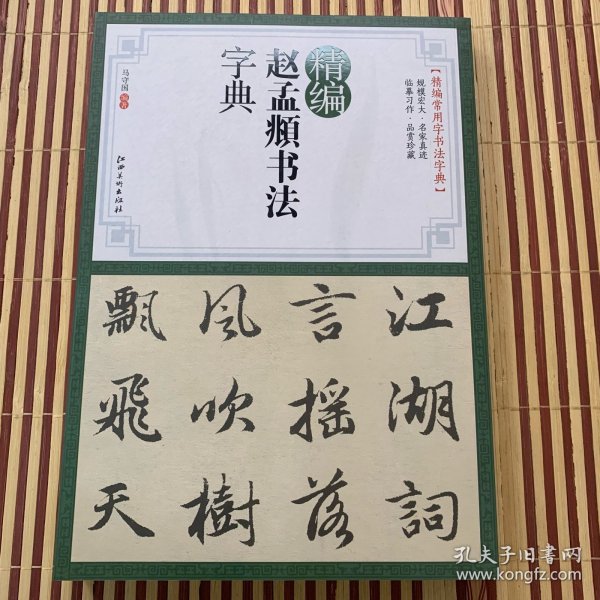 【精编常用字书法字典】
规模宏大·名家真迹
临摹习作·品赏珍藏
精编
赵孟頫书法
字典
马守国 编著
江西美术出版社
江湖詞
言摇落
風吹樹
飄飛天
孔夫子旧书网
www.kongfz.com